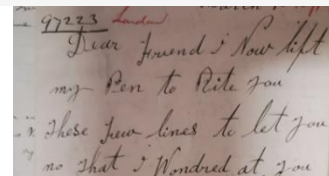 97223 London
Dear Friend i Now lift
my Pen to Rite you
These few lines to let you
no that i Wondred at you